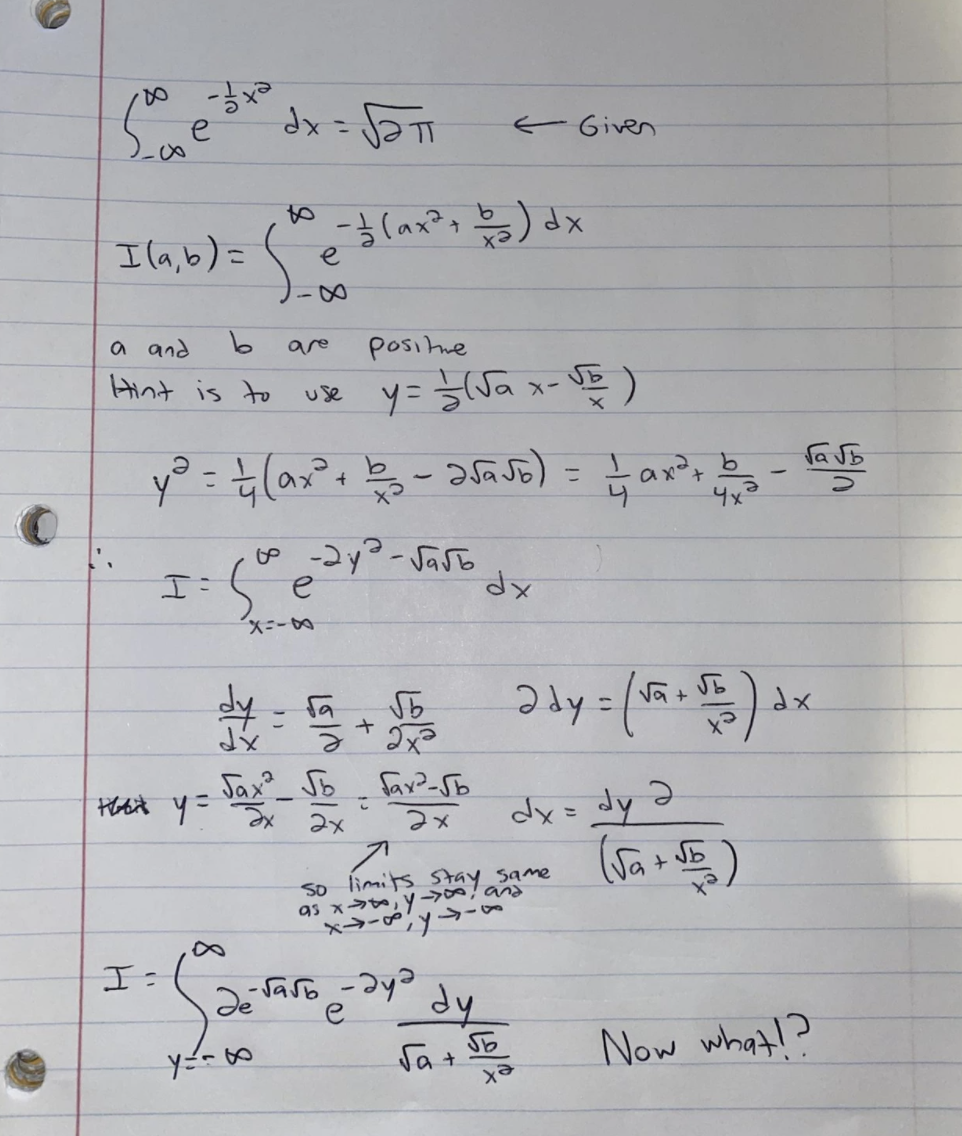 ∫_{-∞}^{∞} e^{-½x²} dx = √2π ← Given
I(a,b) = ∫_{-∞}^{∞} e^{-½(ax² + b/x²)} dx
a and b are positive
Hint is to use y = ½(√a x - √b/x)
y² = ¼(ax² + b/x² - 2√a√b) = ¼ax² + b/4x² - √a√b/2
∴ I = ∫_{x=-∞}^{∞} e^{-2y² - √a√b} dx
dy/dx = √a/2 + √b/2x² 2dy = (√a + √b/x²) dx
y = √a x²/2x - √b/2x = (√a x² - √b)/2x dx = dy 2/(√a + √b/x²)
so limits stay same
as x→∞, y→∞, and
x→-∞, y→-∞
I = ∫_{y=-∞}^{∞} 2e^{-√a√b} e^{-2y²} dy/(√a + √b/x²) Now what!?